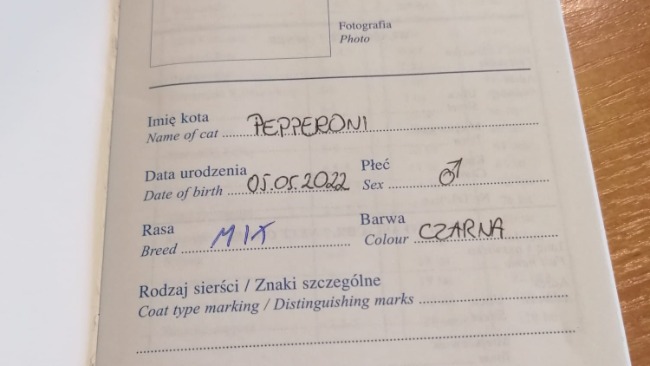 Fotografia
Photo
Imię kota
Name of cat PEPPERONI
Data urodzenia Płeć
Date of birth 05.05.2022 Sex ♂
Rasa Barwa
Breed MIX Colour CZARNA
Rodzaj sierści / Znaki szczególne
Coat type marking / Distinguishing marks